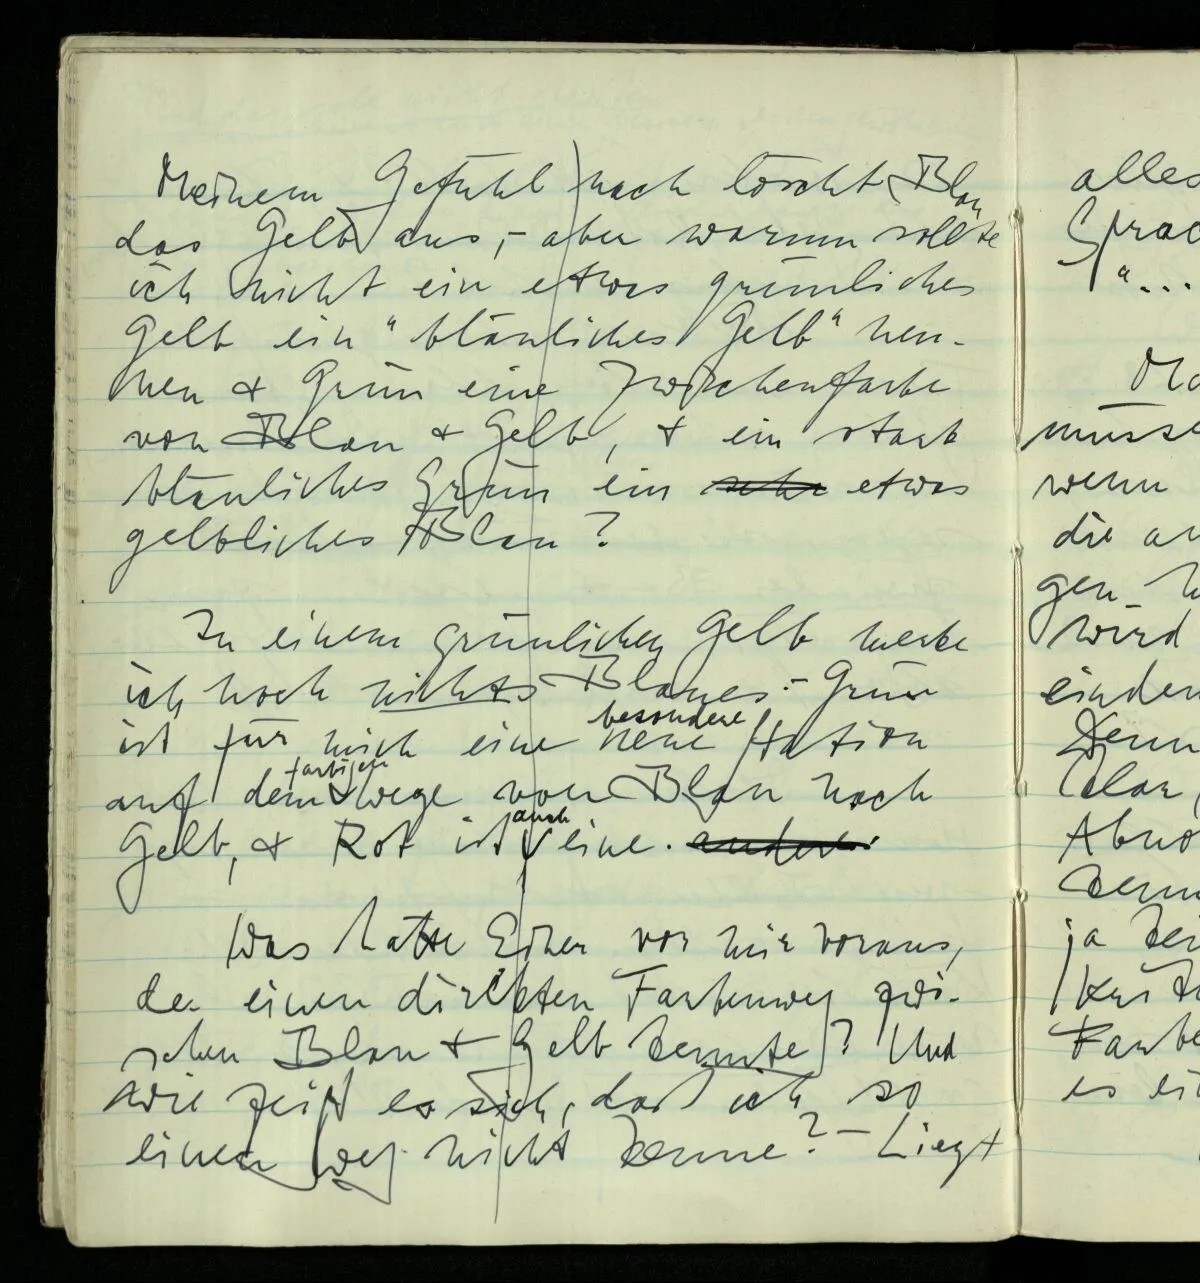 Meinem Gefühl nach löscht Blau
das Gelb aus, – aber warum sollte
ich nicht ein etwas grünliches
Gelb ein "bläuliches Gelb" nen-
nen & Grün eine Zwischenfarbe
von Blau & Gelb, & ein stark
bläuliches Grün ein sehr etwas
gelbliches Blau?
In einem grünlichen Gelb merke
ich noch nichts Blaues. – Grün
besondere
ist für mich eine neue Station
farbigen
auf dem Wege von Blau nach
auch
Gelb, & Rot ist eine. andere.
Was hätte Einer vor mir voraus,
der einen direkten Farbenweg zwi-
schen Blau & Gelb kennte? Und
wie zeigt es sich, daß ich so
einen Weg nicht kenne? – Liegt
alles
Sprac
"...
müsse
wenn
die an
gen
wird
eindeu
Denn
klar,
Abno
kenn
ja kei
Farbe
es ei